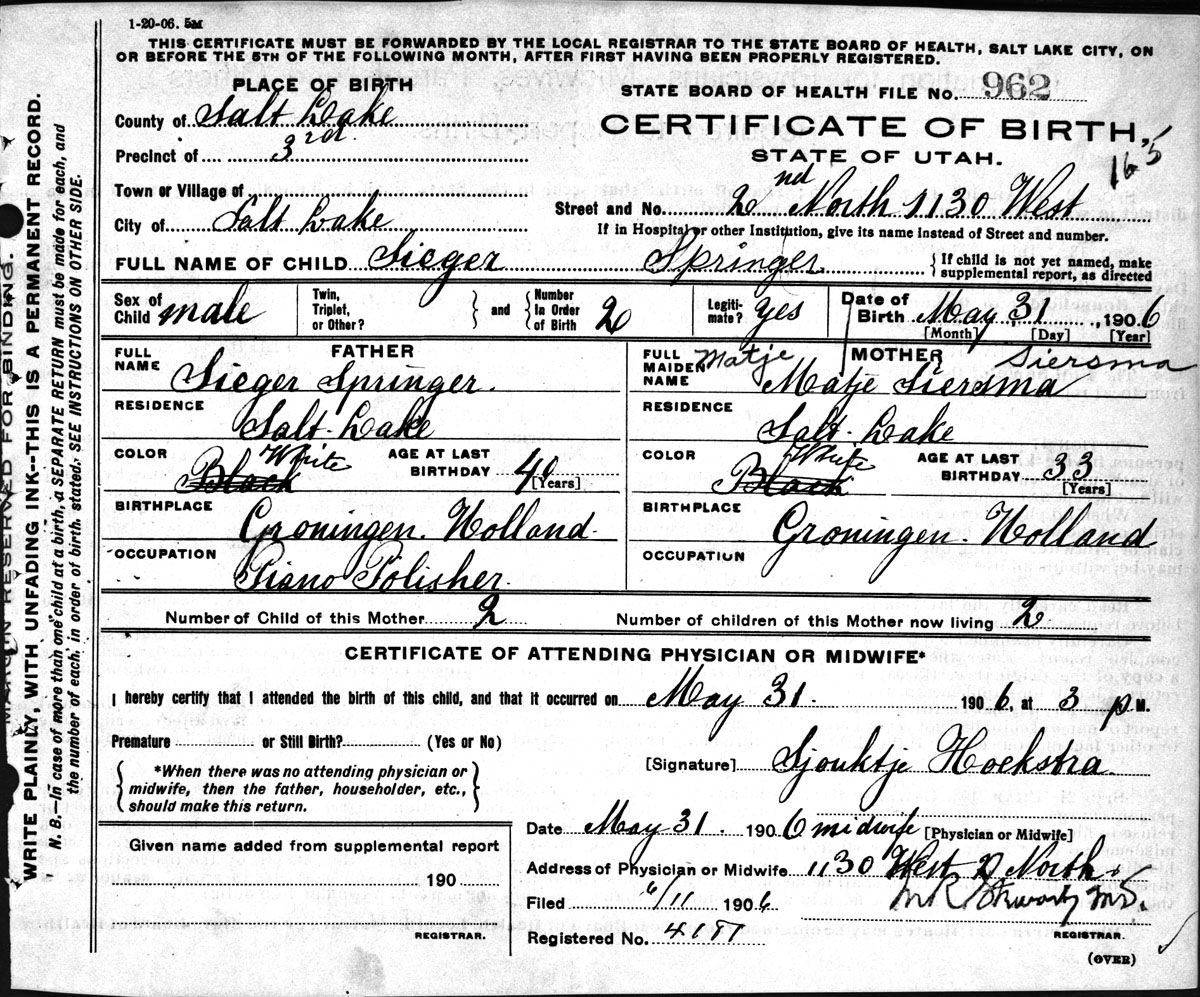 1-20-06. 5M
THIS CERTIFICATE MUST BE FORWARDED BY THE LOCAL REGISTRAR TO THE STATE BOARD OF HEALTH, SALT LAKE CITY, ON
OR BEFORE THE 5TH OF THE FOLLOWING MONTH, AFTER FIRST HAVING BEEN PROPERLY REGISTERED.
PLACE OF BIRTH
STATE BOARD OF HEALTH FILE NO. 962
County of Salt Lake
CERTIFICATE OF BIRTH,
165
Precinct of 3rd.
STATE OF UTAH.
Town or Village of
Street and No. 2nd North 1130 West
City of Salt Lake
If in Hospital or other Institution, give its name instead of Street and number.
FULL NAME OF CHILD Sieger Springer
If child is not yet named, make
supplemental report, as directed
Sex of Child male
Twin, Triplet, or Other?
and
Number In Order of Birth 2
Legitimate? yes
Date of Birth May 31, 1906
[Month] [Day] [Year]
FATHER
FULL NAME Sieger Springer.
RESIDENCE Salt-Lake
COLOR Black White
AGE AT LAST BIRTHDAY 40 [Years]
BIRTHPLACE Groningen. Holland.
OCCUPATION Piano Polisher.
MOTHER
Matje Siersma
FULL MAIDEN NAME Matje Siersma
RESIDENCE Salt-Lake
COLOR Black White
AGE AT LAST BIRTHDAY 33 [Years]
BIRTHPLACE Groningen. Holland
OCCUPATION
Number of Child of this Mother 2
Number of children of this Mother now living 2
CERTIFICATE OF ATTENDING PHYSICIAN OR MIDWIFE*
I hereby certify that I attended the birth of this child, and that it occurred on May 31. 1906, at 3 p M.
Premature or Still Birth? (Yes or No)
[Signature] Sjouktje Hoekstra.
*When there was no attending physician or
midwife, then the father, householder, etc.,
should make this return.
Date May 31. 1906 midwife [Physician or Midwife]
Given name added from supplemental report
190
REGISTRAR.
Address of Physician or Midwife 1130 West 2 North
Filed 6/11 1906
M.D.
REGISTRAR.
Registered No.
(OVER)
MARGIN RESERVED FOR BINDING.
WRITE PLAINLY, WITH UNFADING INK--THIS IS A PERMANENT RECORD.
N. B.--In case of more than one child at a birth, a SEPARATE RETURN must be made for each, and
the number of each, in order of birth, stated. SEE INSTRUCTIONS ON OTHER SIDE.